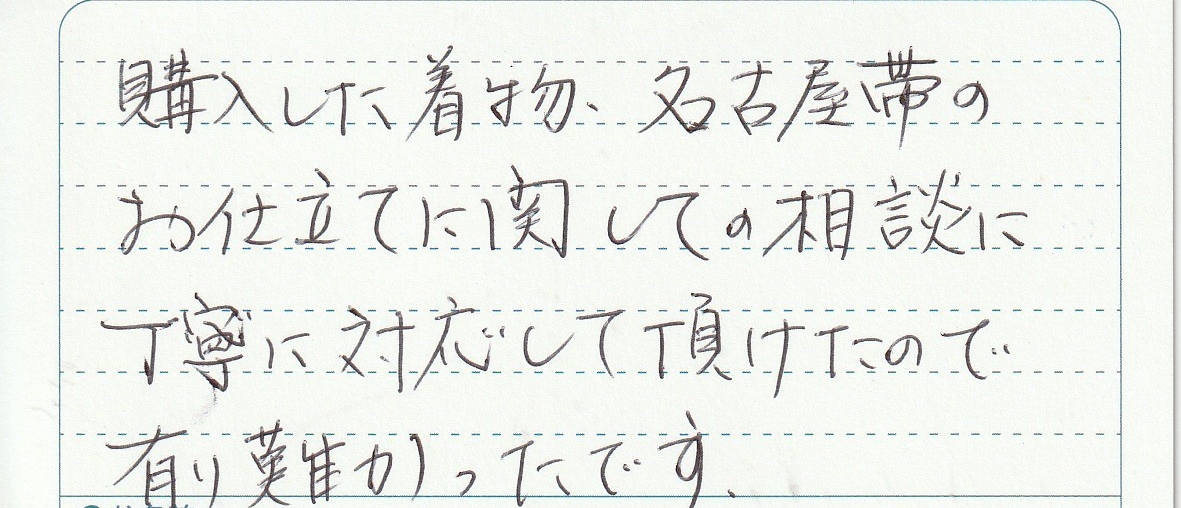 購入した着物、名古屋帯の
お仕立てに関しての相談に
丁寧に対応して頂けたので
有り難かったです。